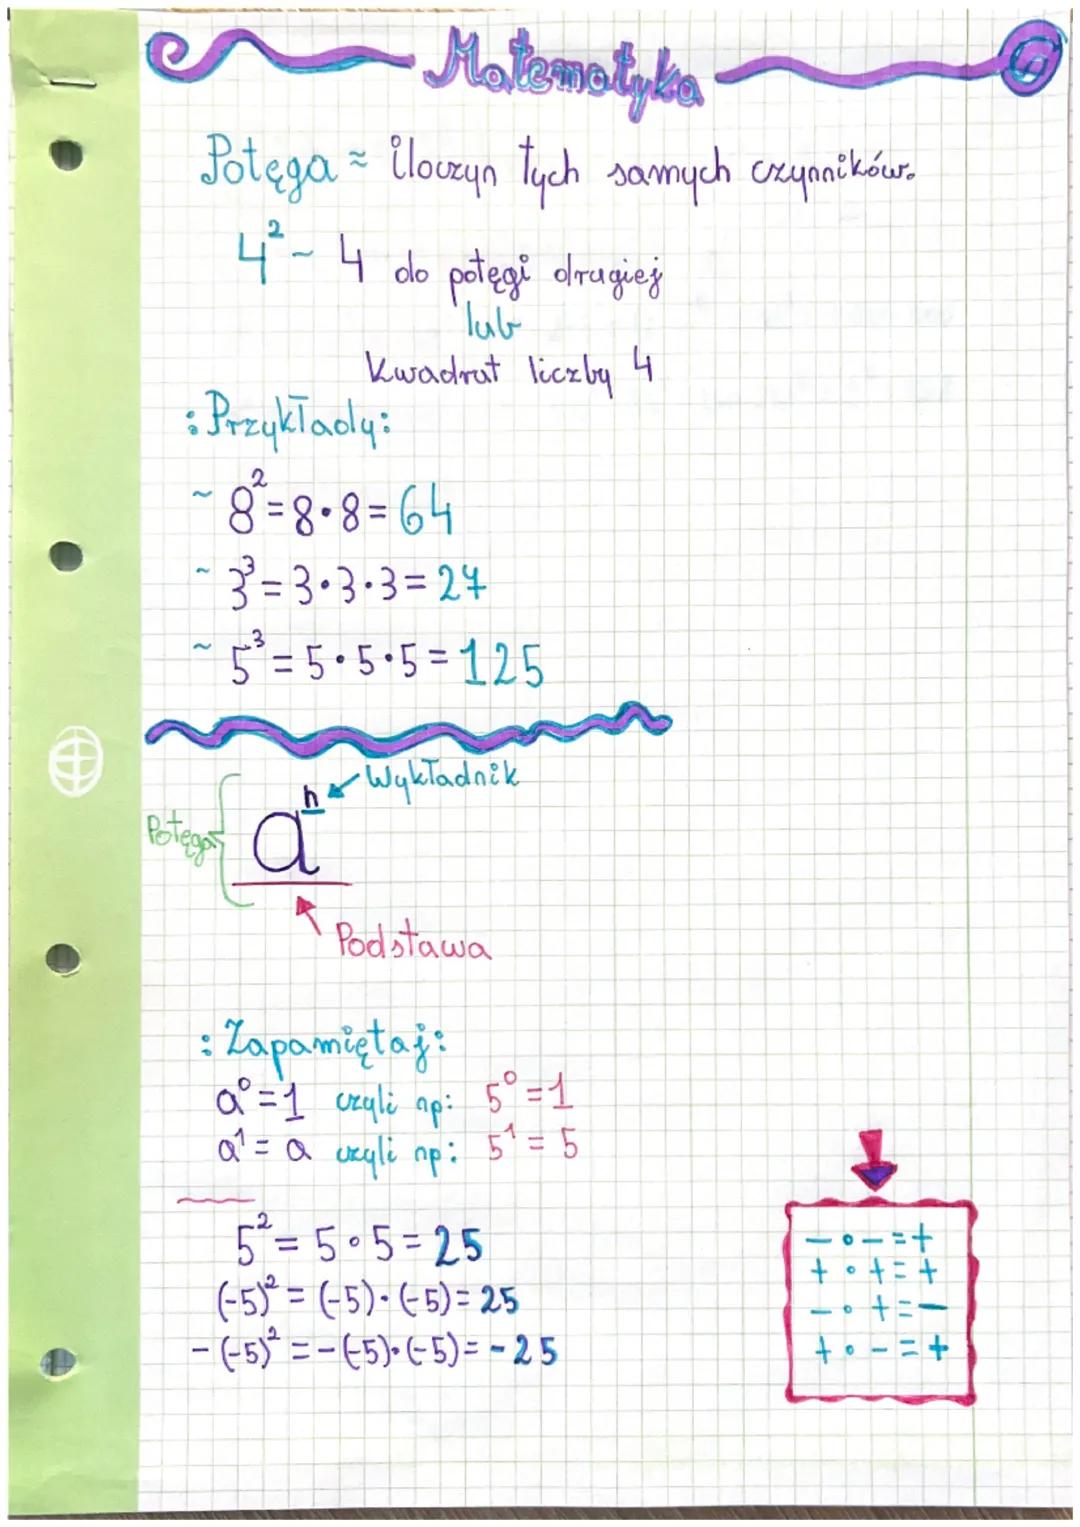 Matematyka
Potęga = iloczyn tych samych czynników.
4² - 4 do potęgi drugiej
lub
Kwadrat liczby 4
:Przykłady:
~ 8² = 8·8 = 64
~ 3³ = 3·3·3 = 27
~ 5³ = 5·5·5 = 125
Wykładnik
Potęga aⁿ
Podstawa
:Zapamiętaj:
a⁰=1 czyli np: 5⁰=1
a¹=a czyli np: 5¹=5
5² = 5·5 = 25
(-5)² = (-5)·(-5) = 25
-(-5)² = -(-5)·(-5) = -25
-·-=+
+·+=+
-·+=-
+·-=+